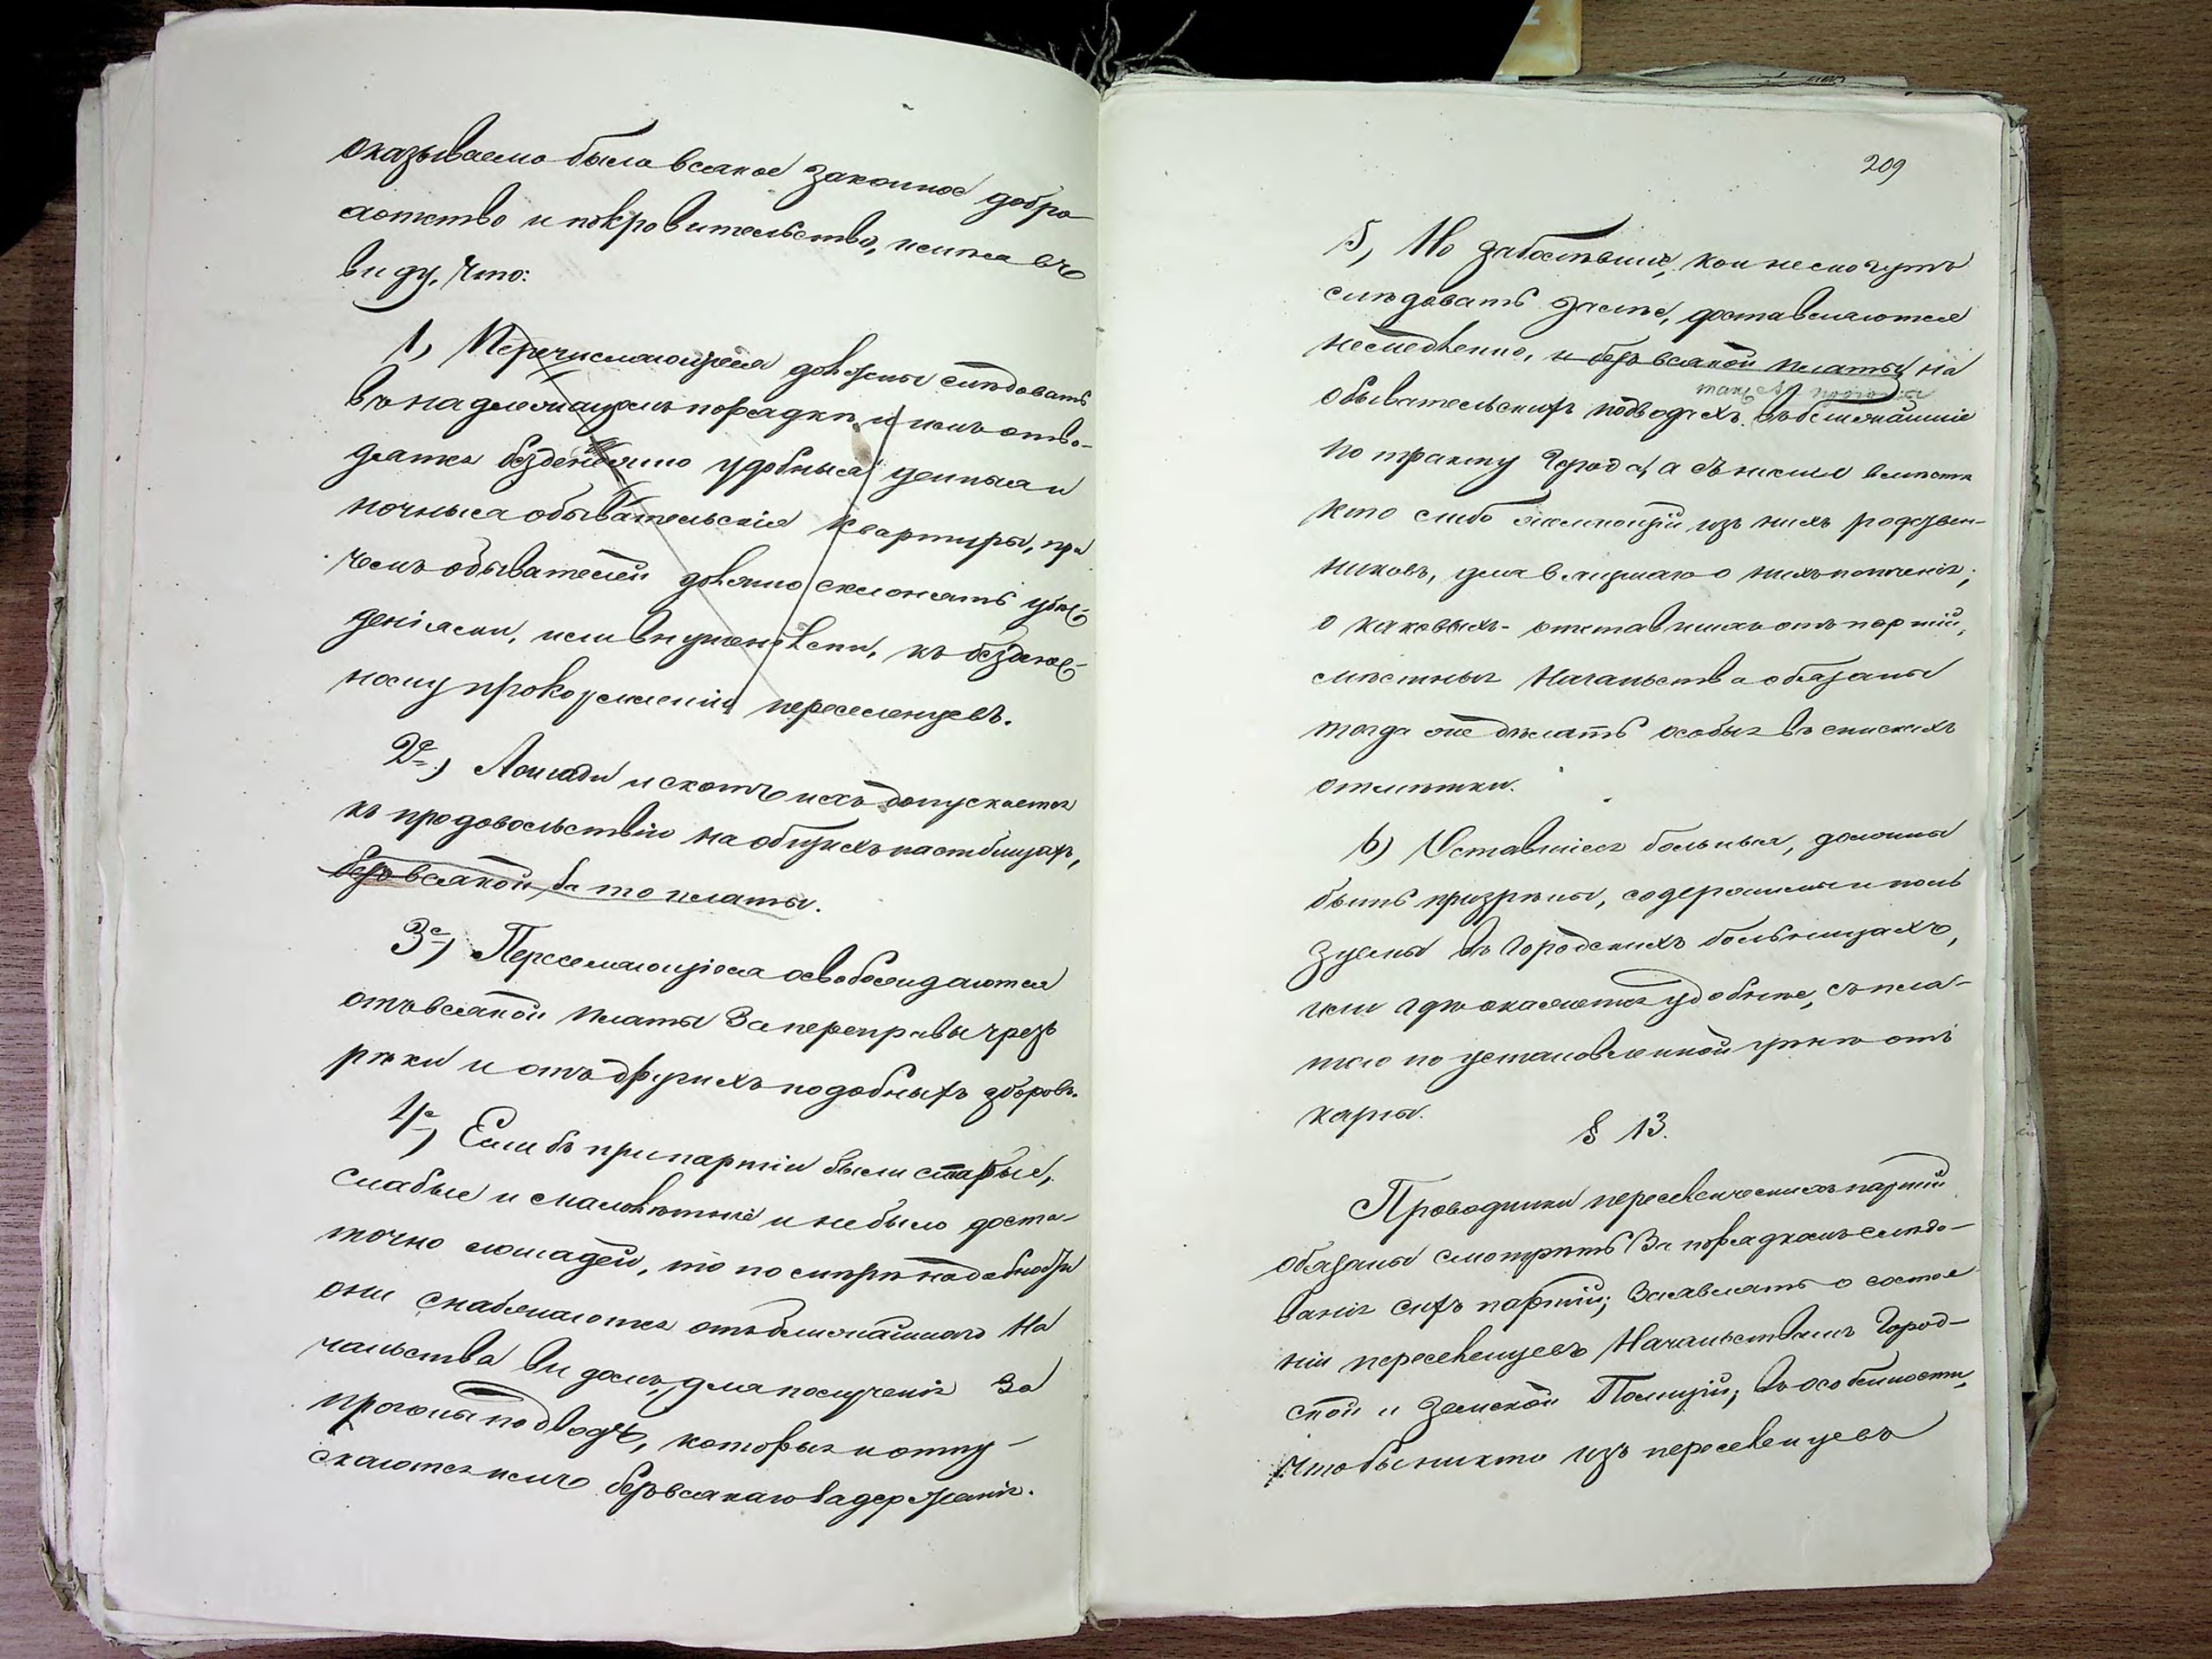 оказываемо было всякое законное добро
хотство и покровительство, имѣя въ
виду, что:
1, Перечисляющіеся должны слѣдовать
въ надлежащемъ порядкѣ и имъ отво-
дятся безденежно удобныя денныя и
ночныя обывательскія квартиры, при
чемъ обывателей должно склонять убѣж-
деніями, или внушеніями, къ безденеж-
ному прокормленію переселенцевъ.
2е, Лошади и скотъ ихъ допускается
къ продовольствію на общихъ пастбищахъ,
безъ всякой за то платы.
3е, Переселяющіеся освобождаются
отъ всякой платы за переправы чрезъ
рѣки и отъ другихъ подобныхъ зборовъ.
4е, Если бъ при партіи были старые,
слабые и малолѣтніе и не было доста-
точно лошадей, то по мѣрѣ надобности
они снабжаются отъ ближайшаго На
чальства видомъ, для полученія за
прогоны подводъ, которыя и отпу-
скаются имъ безъ всякаго задержанія.
209
5, Но заболѣвшіе, кои не смогутъ
слѣдовать далѣе, доставляются
немедленно, и безъ всякой платы, на
обывательскихъ подводахъ въ ближайшіе
по тракту города, а съ ними вмѣстѣ
кто либо желающій изъ нихъ родствен-
никовъ, для влучшаго о нихъ попеченія;
о каковыхъ отставшихъ отъ партій,
мѣстныя Начальства обязаны
тогда же дѣлать особыя въ спискахъ
отмѣтки.
6) Оставшіеся больныя, должны
быть призрѣны, содержимы и поль
зуемы въ городскихъ больницахъ,
или гдѣ окажется удобнѣе, съ пла-
тою по установленной цѣнѣ отъ
казны.
§ 13.
Проводники переселенческихъ партій
обязаны смотрѣть за порядкомъ слѣдо-
ванія сихъ партій; заявлять о состоя
ніи переселенцевъ Начальствамъ Город-
ской и Земской Полиціи; въ особенности,
чтобы никто изъ переселенцевъ